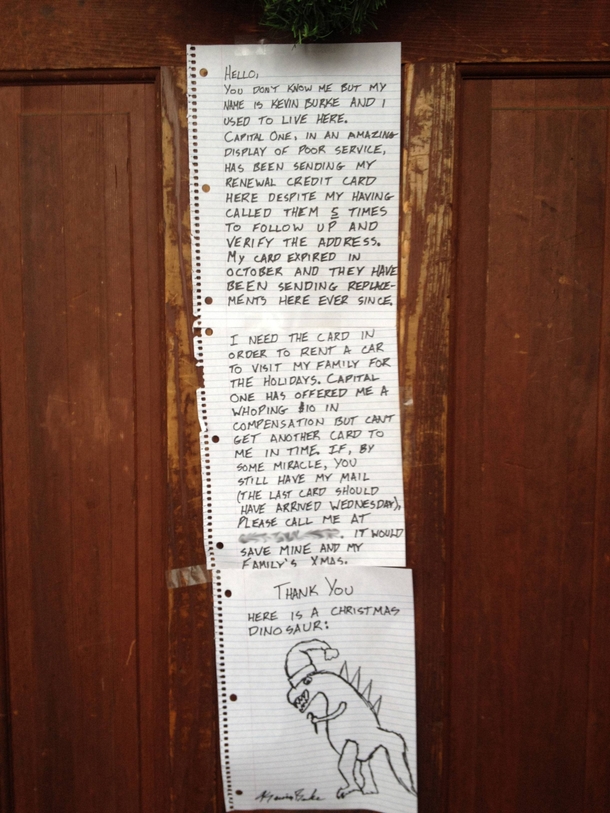 HELLO,
YOU DON'T KNOW ME BUT MY
NAME IS KEVIN BURKE AND I
USED TO LIVE HERE.
CAPITAL ONE, IN AN AMAZING
DISPLAY OF POOR SERVICE,
HAS BEEN SENDING MY
RENEWAL CREDIT CARD
HERE DESPITE MY HAVING
CALLED THEM 5 TIMES
TO FOLLOW UP AND
VERIFY THE ADDRESS.
MY CARD EXPIRED IN
OCTOBER AND THEY HAVE
BEEN SENDING REPLACE-
MENTS HERE EVER SINCE.
I NEED THE CARD IN
ORDER TO RENT A CAR
TO VISIT MY FAMILY FOR
THE HOLIDAYS. CAPITAL
ONE HAS OFFERED ME A
WHOPING $10 IN
COMPENSATION BUT CANT
GET ANOTHER CARD TO
ME IN TIME. IF, BY
SOME MIRACLE, YOU
STILL HAVE MY MAIL
(THE LAST CARD SHOULD
HAVE ARRIVED WEDNESDAY),
PLEASE CALL ME AT
. IT WOULD
SAVE MINE AND MY
FAMILY'S XMAS.
THANK YOU
HERE IS A CHRISTMAS
DINOSAUR:
Kevin Burke